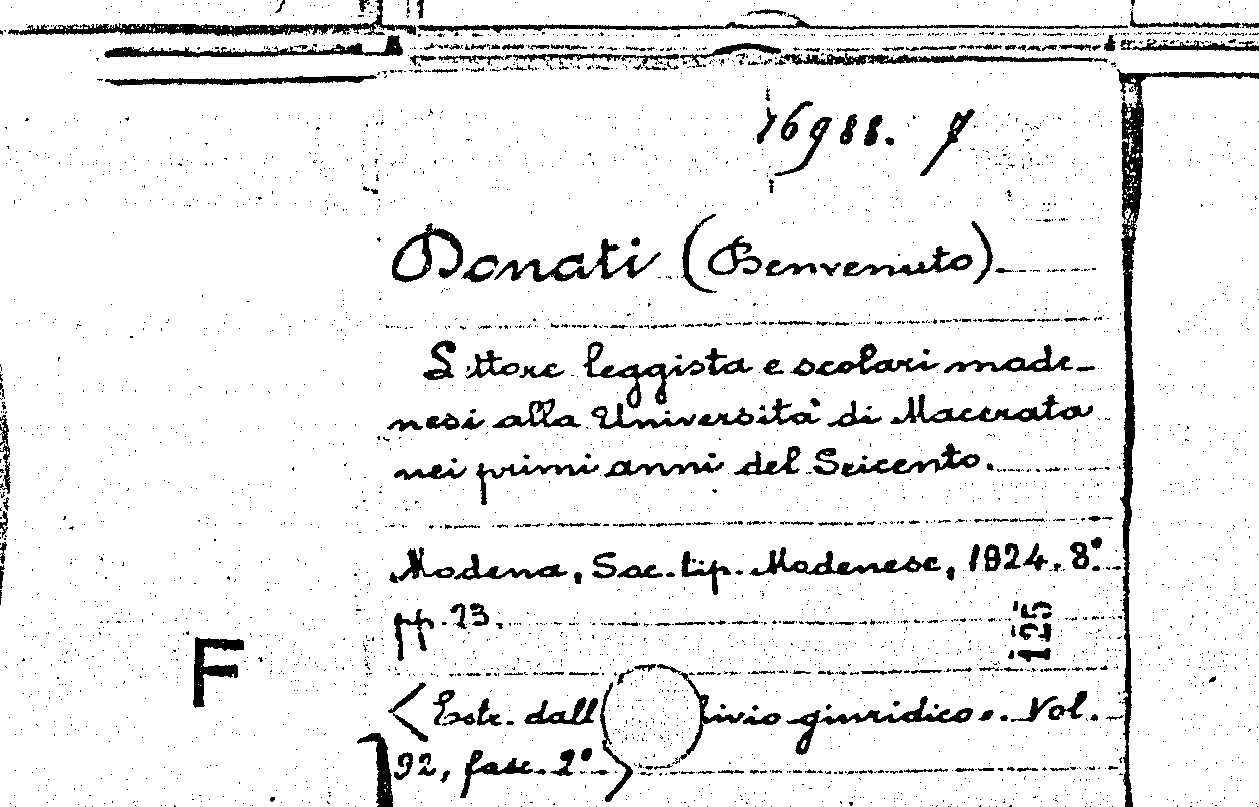 76988. 7
Donati (Benvenuto).
Lettore leggista e scolari mode-
nesi alla Università di Macerata
nei primi anni del Seicento.
Modena, Soc. tip. Modenese, 1924. 8º.
pp. 23.
125
F
< Estr. dall ivio giuridico». Vol.
92, fasc. 2º.>